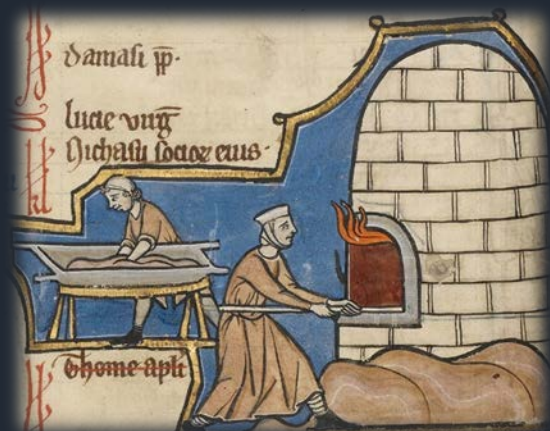 damasi pp̄.
lucie virḡ
Nichasii socioꝝ eius.
Thome apli